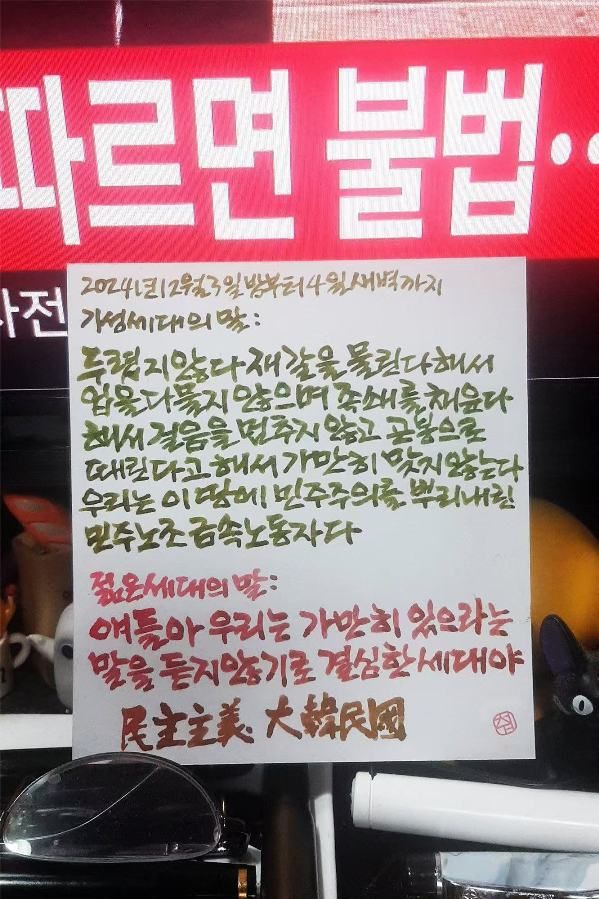 따르면 불법··
사전
2024년 12월 3일 밤부터 4일 새벽까지
기성세대의 말:
두렵지 않다 재갈을 물린다 해서
입을 다물지 않으며 족쇄를 채운다
해서 걸음을 멈추지 않고 곤봉으로
때린다고 해서 가만히 맞지 않는다
우리는 이 땅에 민주주의를 뿌리내린
민주노조 금속노동자다
젊은 세대의 말:
얘들아 우리는 가만히 있으라는
말을 듣지 않기로 결심한 세대야
民主主義 大韓民國